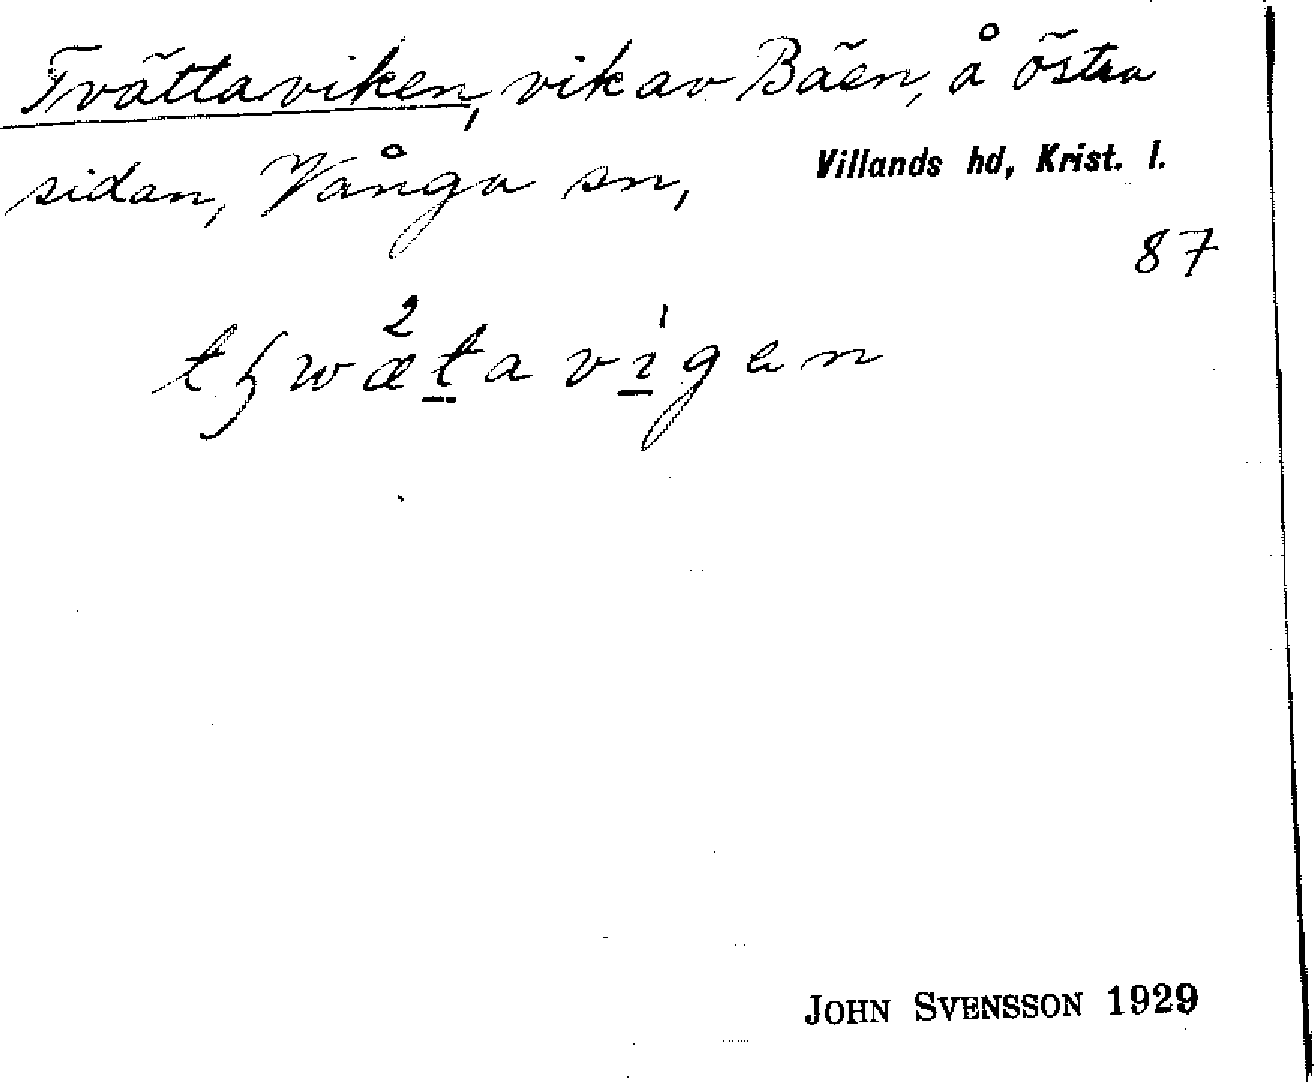 Tvättaviken, vik av Bäen, å östra
sidan, Vånga sn, Villands hd, Krist. l.
87
tɧwæ²ta vi¹gen
JOHN SVENSSON 1929